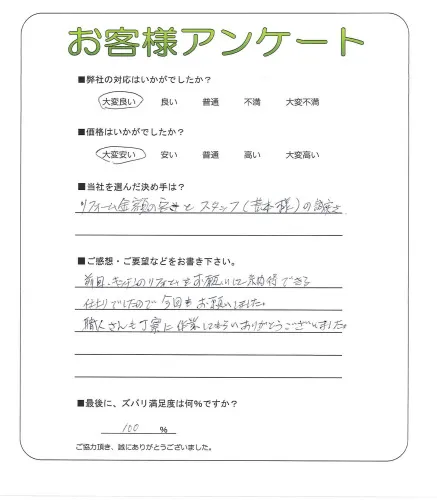 お客様アンケート
■弊社の対応はいかがでしたか？
大変良い 良い 普通 不満 大変不満
■価格はいかがでしたか？
大変安い 安い 普通 高い 大変高い
■当社を選んだ決め手は？
リフォーム金額の安さとスタッフ(様)の
■ご感想・ご要望などをお書き下さい。
前回、キッチンのリフォームをお願いしできる
仕上りでしたので今回もお願いしました。
職人さんも丁寧に作業してもらいありがとうございました。
■最後に、ズバリ満足度は何％ですか？
100 ％
ご協力頂き、誠にありがとうございました。